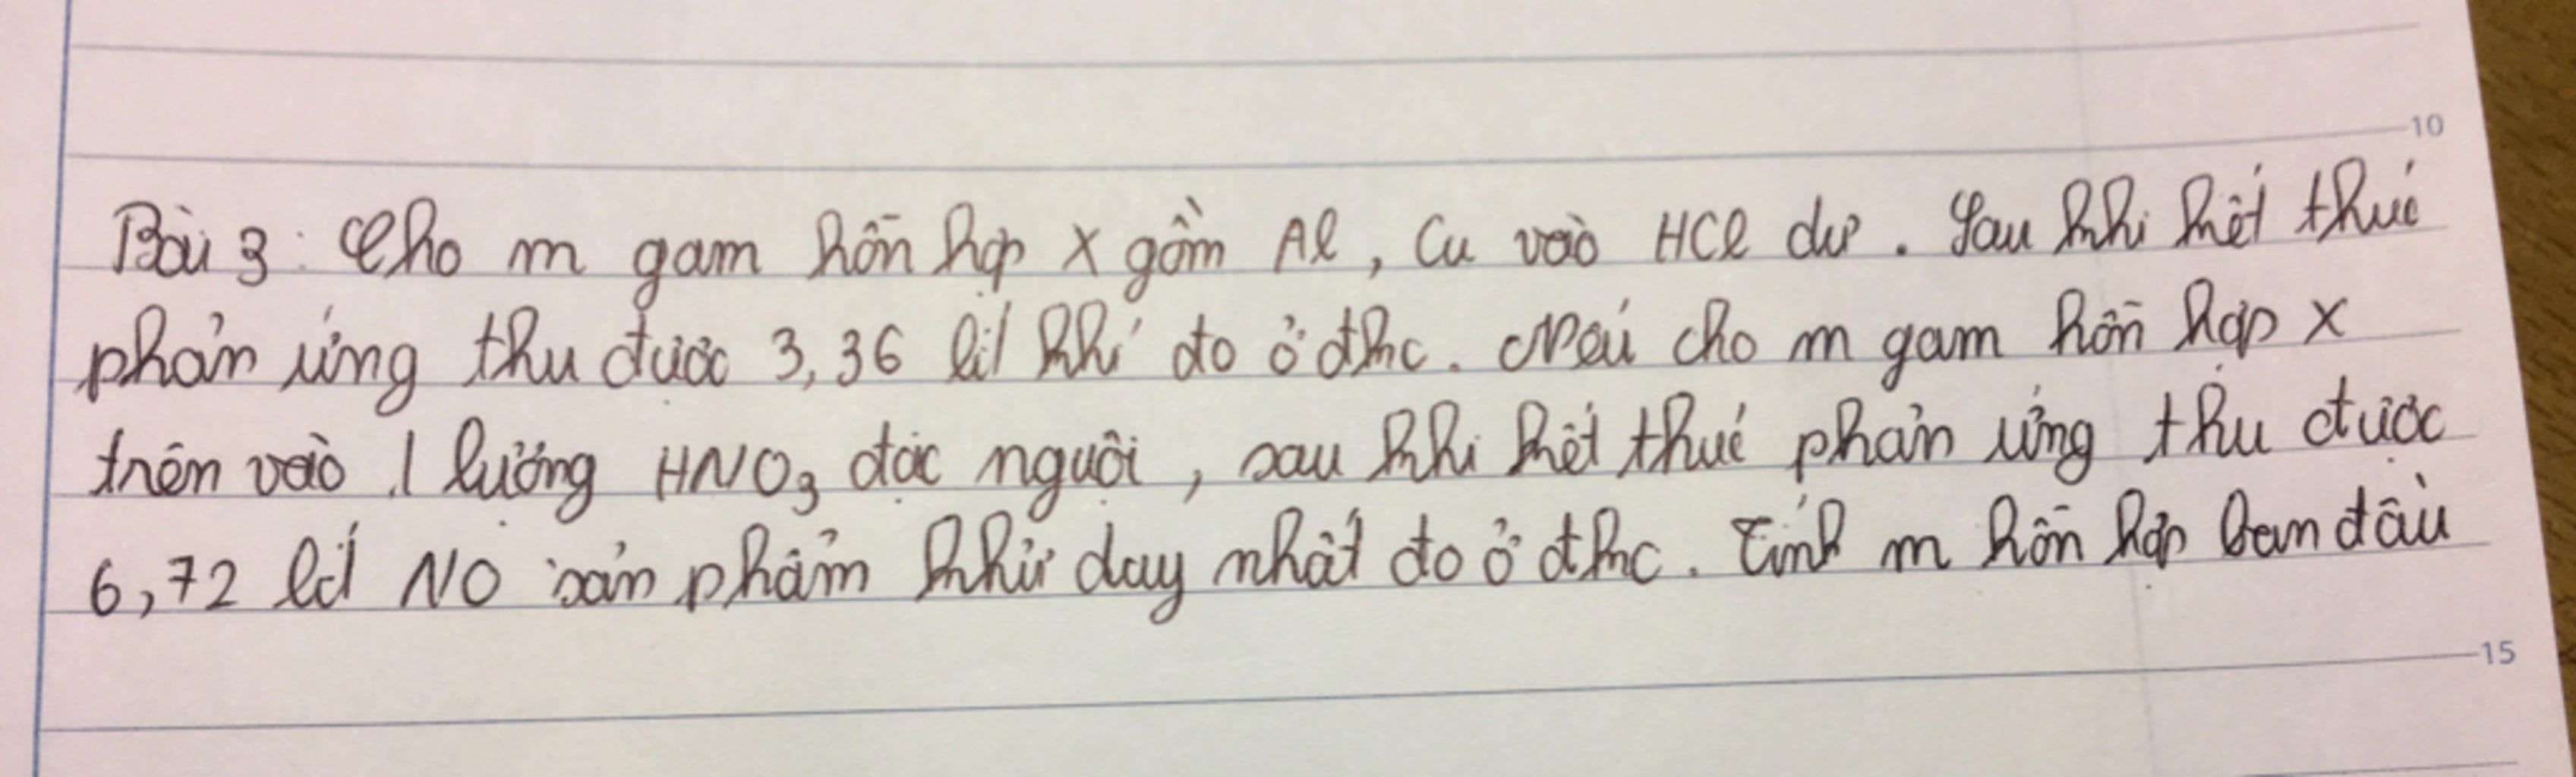 10
Bài 3: Cho m gam hỗn hợp X gồm Al, Cu vào HCl dư. Sau khi kết thúc
phản ứng thu được 3,36 lít khí đo ở đkc. Nếu cho m gam hỗn hợp X
trên vào 1 lượng HNO3 đặc nguội, sau khi kết thúc phản ứng thu được
6,72 lít NO sản phẩm khử duy nhất đo ở đkc. Tính m hỗn hợp ban đầu
15